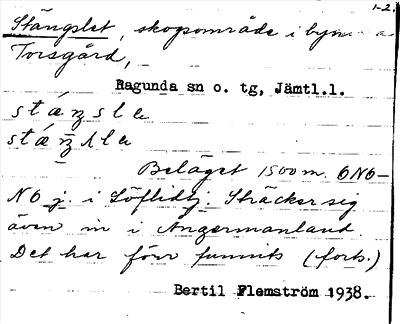 1-2.
Stängslet, skogsområde i byn
Torsgård,
Ragunda sn o. tg, Jämtl.l.
Beläget 1500 m. ONO-
NO j. i Löflidbj. Sträcker sig
även in i Ångermanland
Det har förr funnits (forts.)
Bertil Flemström 1938.